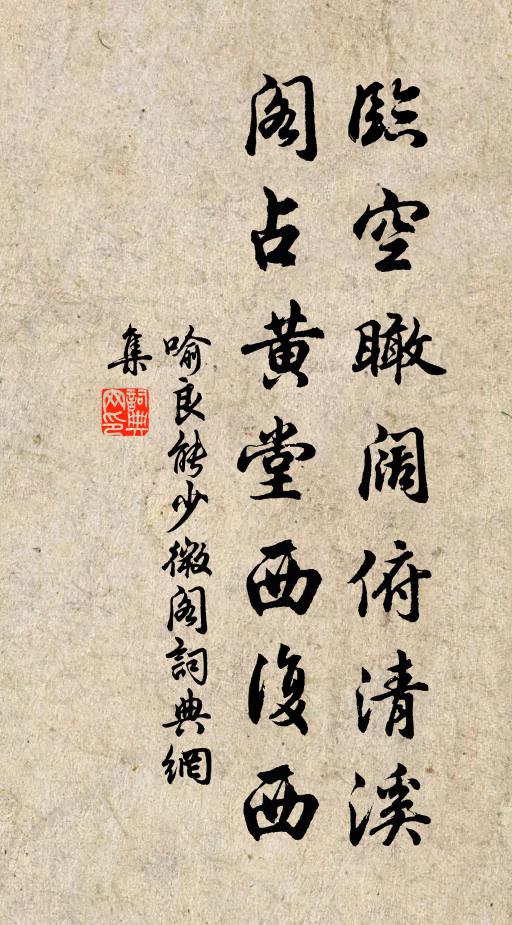 臨空瞰闊俯清溪
閣占黃堂西復西
喻良能少微閣詞典網
集
詞典
網印